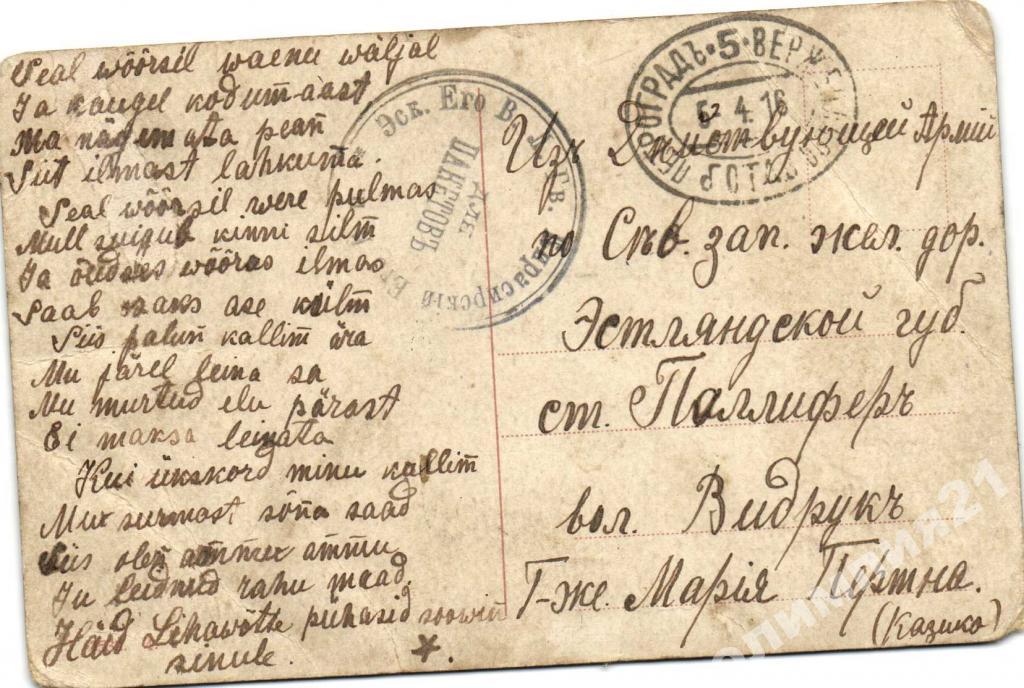 Seal wõõrsil waenu wäljal
Ja kaugel kodumaast
Ma nägemata pean
Siit ilmast lahkuma.
Seal wõõrsil were pulmas
Mull suigub kinni silm
Ja õudses wõõras ilmas
Saab saks ase külm
Siis palun kallim ära
Mu järel leina sa
Mu murtud elu pärast
Ei maksa leinata
Kui ükskord minu kallim
Mu surmast sõna saad
Siis olen ammu ammu
Ju leidnud rahu maad.
Häid Lihawõtte pühasid soowin
sinule.
*.
Эск. Его В.
ДЛЕ
ПАКЕТОВЪ
ПЕТРОГРАДЪ • 5 •
4.16
Изъ Действующей Армій
по Сѣв. зап. жел. дор.
Эстляндской губ.
ст. Паллиферъ
вол. Видрукъ
Г-же. Марія Пертна.
(Казико)